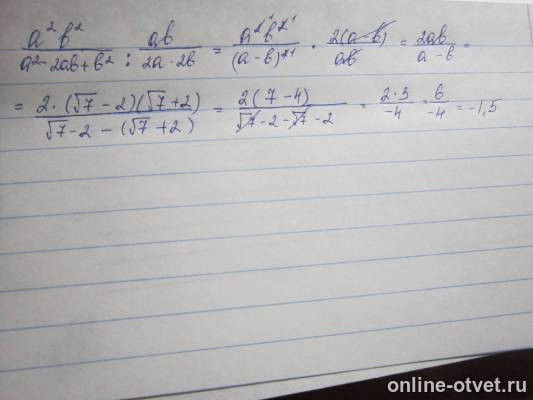 a²b² / a² - 2ab + b² : ab / 2a - 2b = a²b² / (a - b)² · 2(a - b) / ab = 2ab / a - b =
= 2 · (√7 - 2)(√7 + 2) / √7 - 2 - (√7 + 2) = 2(7 - 4) / √7 - 2 - √7 - 2 = 2·3 / -4 = 6 / -4 = -1,5
online-otvet.ru